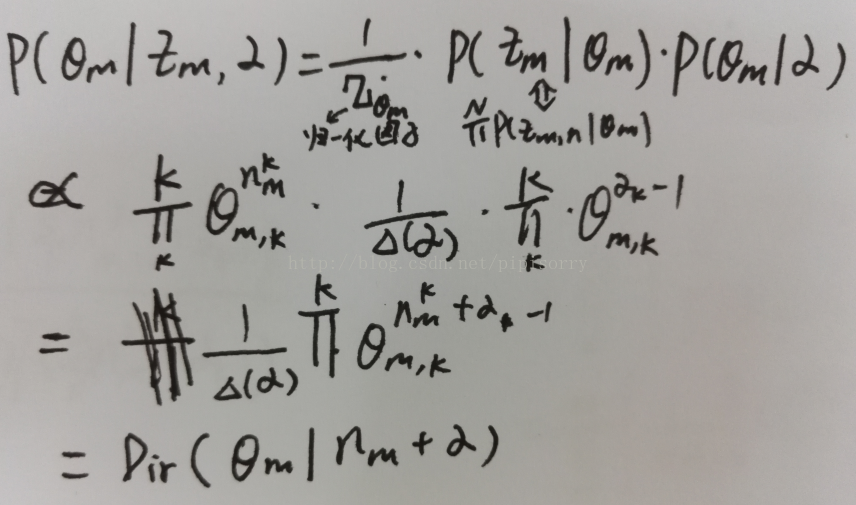 P(θm|zm,α)=1/Zθm·P(zm|θm)·P(θm|α)
归一化因子 ⇕ ∏^N P(zm,n|θm)
∝ ∏_k^K θ_{m,k}^{n_m^k} · 1/Δ(α) · ∏_k^K · θ_{m,k}^{α_k-1}
http://blog.csdn.net/pipisorry
= 1/Δ(α) ∏^K θ_{m,k}^{n_m^k+α_k-1}
= Dir(θm|nm+α)